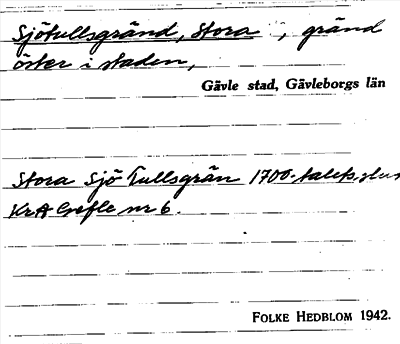 Sjötullsgränd, Stora, gränd
öster i staden,
Gävle stad, Gävleborgs län
Stora Sjö Tullsgrän 1700-talets slut
KrA Gefle nr 6.
FOLKE HEDBLOM 1942.